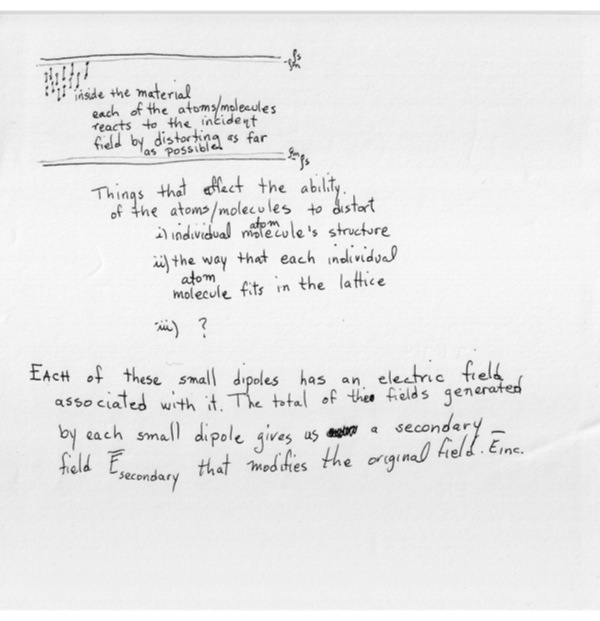 fs
fm
inside the material
each of the atoms/molecules
reacts to the incident
field by distorting as far
as possible.
fm fs
Things that effect the ability
of the atoms/molecules to distort
atom
i) individual molecule's structure
ii) the way that each individual
atom
molecule fits in the lattice
iii) ?
EACH of these small dipoles has an electric field
associated with it. The total of the fields generated
by each small dipole gives us a secondary
field E̅secondary that modifies the original field. E̅inc.